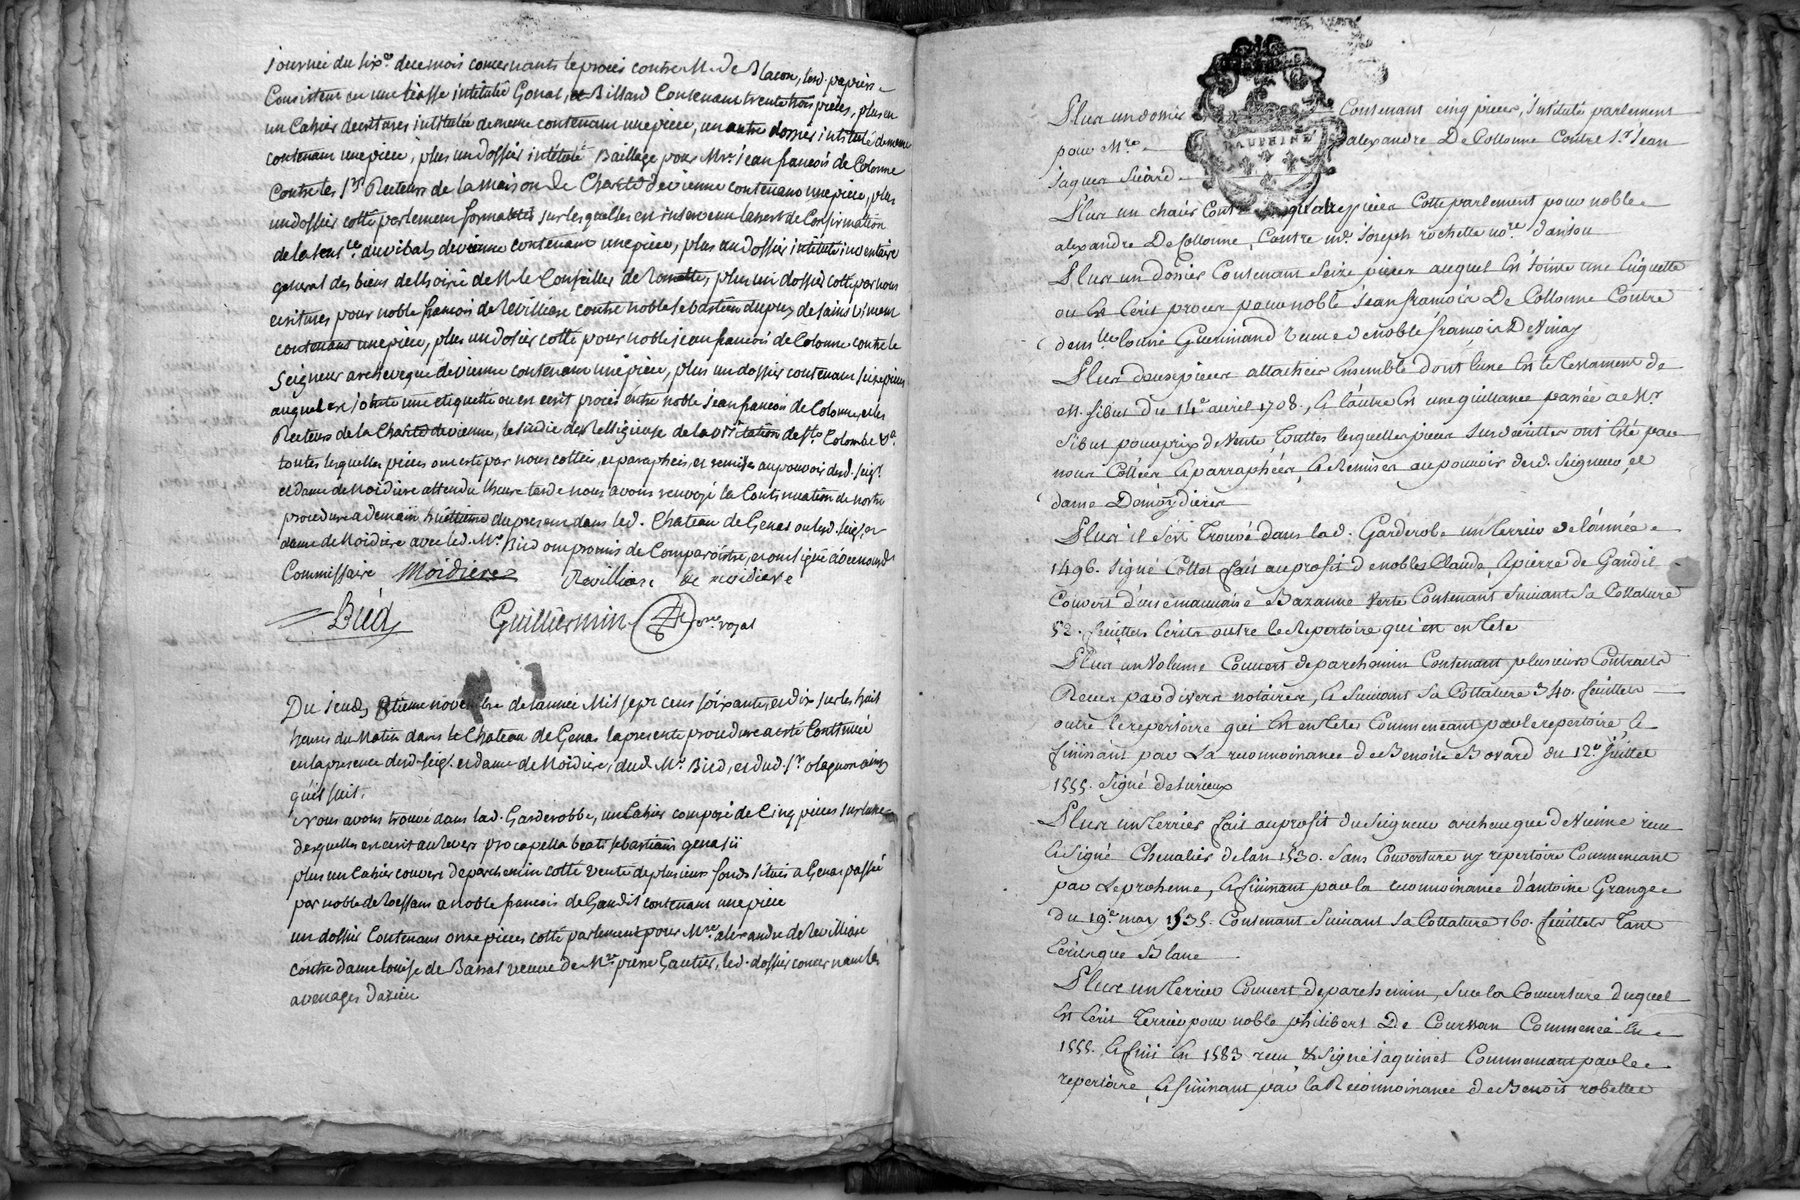 journée du six.e de ce mois concernants le procés contre M.r De Blacon, lesd. papiers
Consistent en une liasse intitulée Genas, et Billard Contenant trente trois pieces, plus en
un Cahier decritures intitulée de meme contenant une piece, un autre dossier intitulé de meme
contenant une piece, plus un dossier intitulé Bailliage pour Mre. jean francois de Colonne
Contre les S.rs Recteurs de la maison de Charité de vienne contenant une piece, plus
un dossier cotté parlement sur lesquelles en intervenu larrest de Confirmation
de la sent.ce du vibaly de vienne contenant une piece, plus un dossier intitulé inventaire
general des biens de lhoirie de M.r le Conseiller de plus un dossier cotté par nous
ecritures pour noble francois de Revilliasc contre noble sebastien dupuy de saint vincent
contenant une piece, plus un dossier cotté pour noble jean francois de Colonne contre le
Seigneur archeveque de vienne contenant une piece, plus un dossier contenant seize pieces
auquel est jointe une etiquette ou est ecrit procés entre noble jean francois de Colonne, et les
Recteurs de la Charité de vienne, le sindic des Religieuse de la Visitation de S.te Colombe
toutes lesquelles pieces ont esté par nous cottées, et paraphées, et remises au pouvoir desd. seig.r
et dame de Moidiere attendu lheure tarde nous avons renvoyé la Continuation de nostre
procedure a demain huitieme du present dans led. Chateau de Genas ou led. seig.r et
dame de Moidiere avec led. M.e Bied ont promis de Comparoitre, et ont signé avec nousd.
Commissaire Moidiere Revilliasc de moidiere
Bied Guillermin no.re royal
Du jeudy novembre de lannée Mil sept cens soixante, et dix sur les huit
heures du Matin dans le Chateau de Genas la presente procedure a esté Continuée
en la presence desd. seig.r et dame de Moidiere, dud. M.e Bied, et dud. S.r olagnon ainsy
quil suit.
Nous avons trouvé dans lad. Garderobbe, un Cahier composé de Cinq pieces sur lune
desquelles en ecrit au revers pro capella beati sebastiani genasii
plus un Cahier couvert de parchemin cotté vente de plusieurs fonds situés a Genas passée
par noble de Rossans a noble francois de Gandil contenant une piece
un dossier Contenant onze pieces cotté parlement pour Mre. alexandre de Revilliasc
contre dame louise de Barral veuve de M.re pierre Gautier, led. dossier concernant les
avenages dazieu
Plus un dossier Contenant cinq pieces, Intitulé parlement
pour M.re alexandre De Collonne Contre S.r Jean
Jaques Suard
Plus un chaiér Cont quatre pieces Cotté parlement pour noble
alexandre De Collonne, Contre m.e Joseph rochette no.re d'anjou
Plus un dossier Contenant Seize pieces auquel Est Jointe une Etiquette
ou Est Ecrit procés pour noble Jean francois De Collonne Contre
dem.lle louise Guerimand veuve de noble francois De Vinay
Plus deux pieces attachées Ensemble dont l'une Est le Testament de
m. Sibut du 14.e avril 1708, Et l'autre Est une quittance passée a M.r
Sibut pour prix de Vente, Touttes lesquelles pieces Susd. écrittes ont Eté par
nous Cottées Et parraphées, Et Remises au pouvoir desd. Seigneur et
dame De moydieres
Plus il s'est Trouvé dans lad. Garderobe un terrier de l'année
1496. Signé Cottet fait au profit de nobles Claude, Et pierre de Gandil
Couvert d'une mauvaise Bazanne verte Contenant Suivant Sa Cottature
52. feuillets Ecrits outre le Repertoire qui est en tete
Plus un Volume Couvert de parchemin Contenant plusieurs Contracts
Receus par divers notaires, Et Suivant Sa Cottature 340. feuillets
outre le repertoire qui Est en tete Commencant par le repertoire, Et
finissant par La reconnoissance de Benoit Bovard du 12.e Juillet
1555. Signé desurieux
Plus un terrier fait au profit du Seigneur archeveque de Vienne receu
Et Signé Chevalier de lan 1530. Sans Couverture ny repertoire Commencant
par Le proheme, Et finissant par la reconnoissance d'antoine Grange
du 19.e may 1535. Contenant Suivant Sa Cottature 160. feuillets Tant
Ecrits que Blanc
Plus un terrier Couvert de parchemin, Sur la Couverture duquel
Est Ecrit Terrier pour noble philibert De Coursan Commencé En
1555. Et fini En 1583 receu & Signé Jaquinet Commencant par le
repertoire, Et finissant par la Reconnoissance de Benoit robelle
DAUPHINÉ